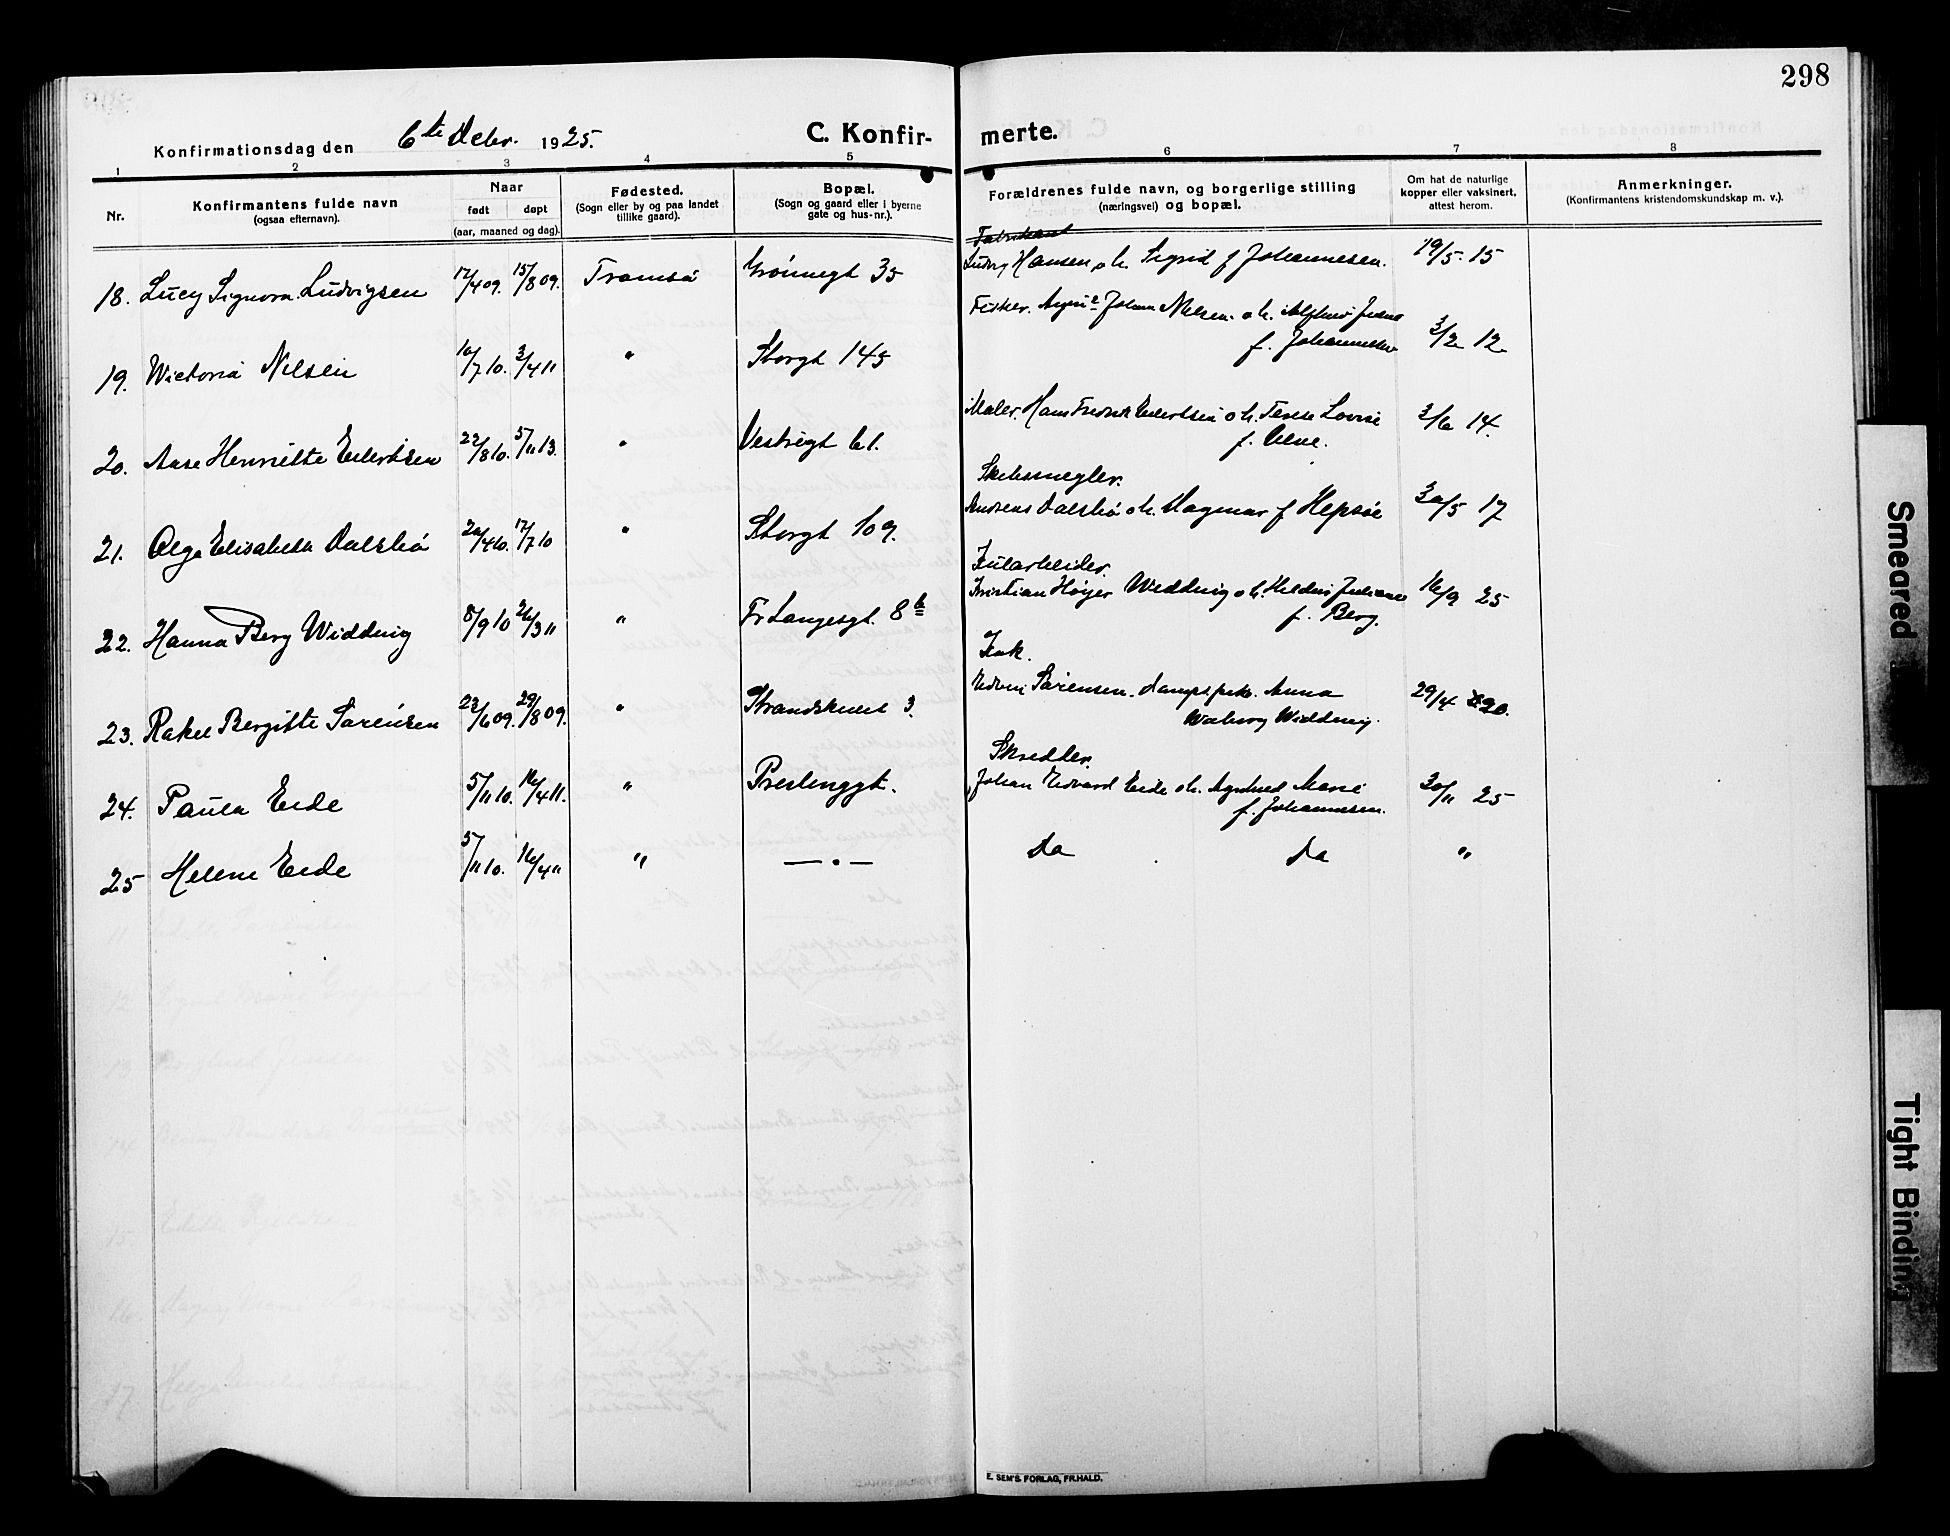 298
Konfirmationsdag den 6te Debr. 1925.
C. Konfirmerte.
1 2 3 4 5 6 7 8
Nr.
Konfirmantens fulde navn
(ogsaa efternavn).
Naar
født døpt
(aar, maaned og dag).
Fødested.
(Sogn eller by og paa landet
tillike gaard).
Bopæl.
(Sogn og gaard eller i byerne
gate og hus-nr.).
Forældrenes fulde navn, og borgerlige stilling
(næringsvei) og bopæl.
Om hat de naturlige
kopper eller vaksinert,
attest herom.
Anmerkninger.
(Konfirmantens kristendomskundskap m. v.).
Fabrikant
18. Lucy Signora Ludvigsen 17/4 09. 15/8 09. Tromsö Grönnegt 35 Ludvig Hansen o h. Sigrid f Johannesen. 19/5 15
Fisker. Johan Nilsen o h.
19. Wictoria Nilsen 10/7 10. 3/4 11 " Storgt 145 f. Johannesen 3/2 12
Maler. Hans Fredrik Eilertsen o h. Terese Lovise
20. Aase Henriette Eilertsen 22/8 10. 5/11 13. " Vestregt 61. f. 3/6 14.
Skibsmegler.
21. Olga Elisabeth Dalsbö 20/4 10. 17/7 10 " Storgt 109. Andreas Dalsbö o h. Dagmar f Hepsöe 30/5 17
Kularbeider.
22. Hanna Berg Widding 8/9 10 26/3 11 " Fr Langesgt. 8b Kristian Höijer Widding o h. Juliane
f. Berg. 16/9 25
Kok.
23. Rakel Bergitte Sörensen 22/6 09. 29/8 09. " Strandskillet 3. Edvin Sörensen. Anna
Walborg Widding. 29/4 20.
Skredder.
24. Paula Eide 5/11 10. 16/4 11. " Prestenggt. Johan Edvard Eide o h. Marie
f. Johannesen. 30/11 25
25 Helene Eide 5/11 10. 16/4 11 " — " — do do "
E. SEM'S FORLAG, FR.HALD.
Smeared
Tight Binding